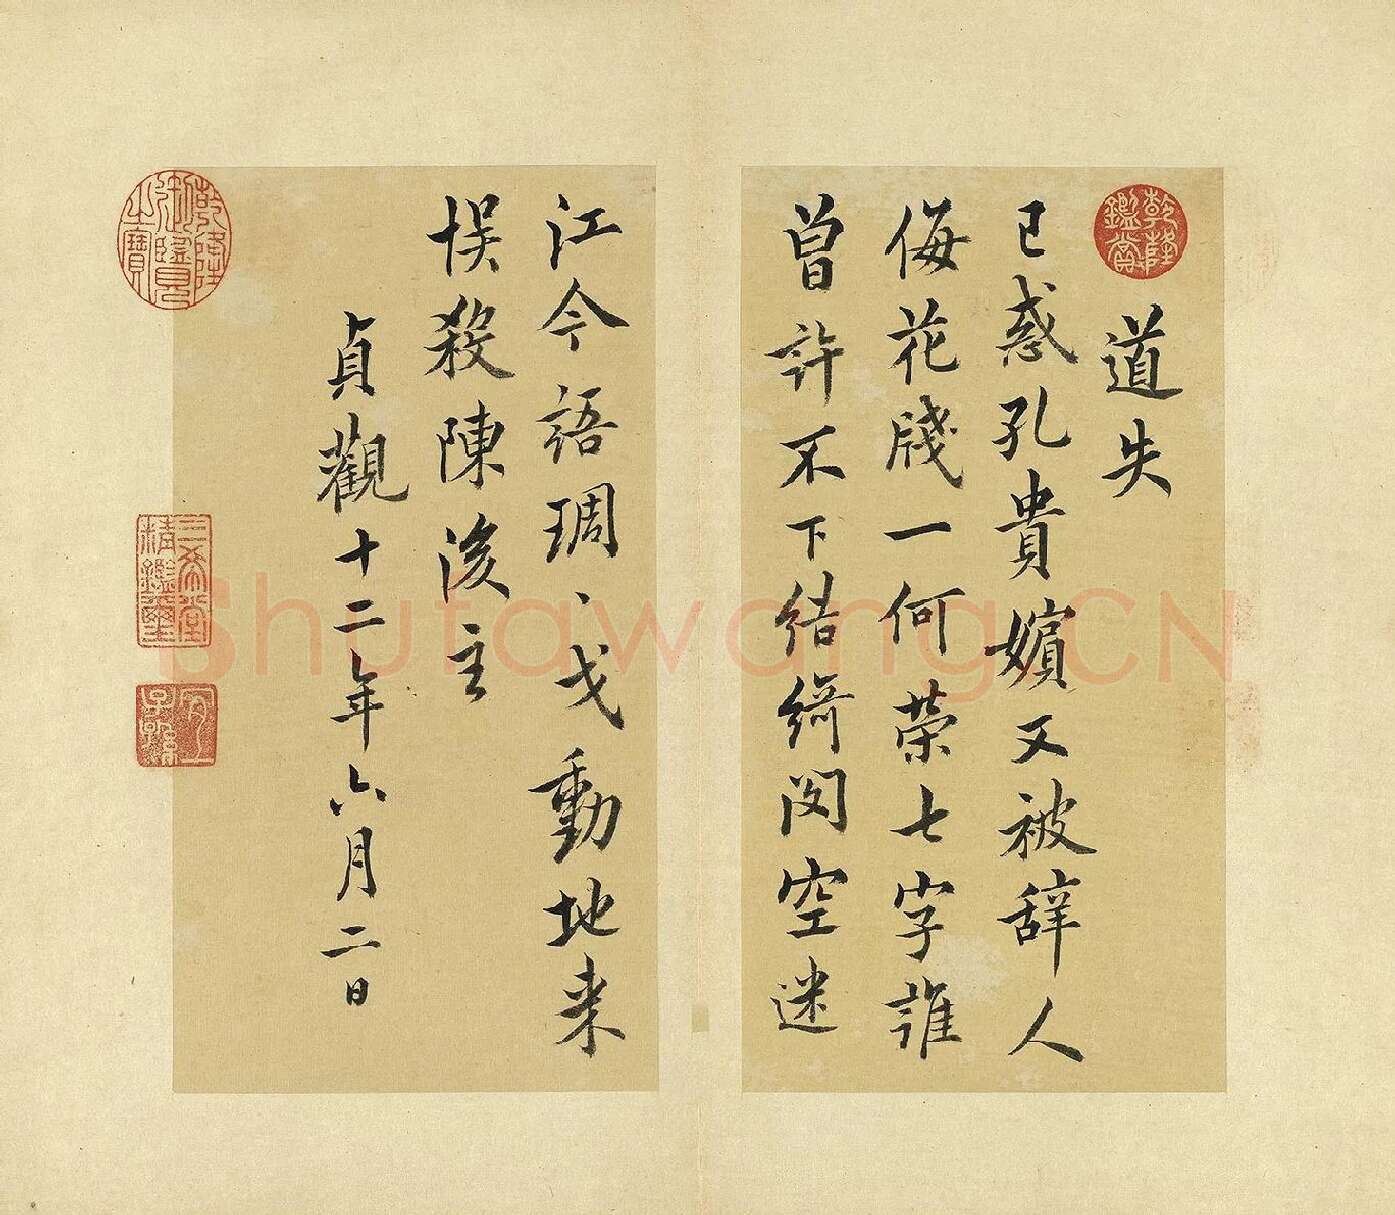 乾隆鑑賞
道失
已惑孔貴嬪又被辞人
侮花牋一何荣七字誰
曽許不下结綺閣空迷
江令語琱、戈動地来
悮殺陳後主
貞觀十二年六月二日
乾隆御覽之寶
三希堂精鑑璽
宜子孫
Shufawang.CN